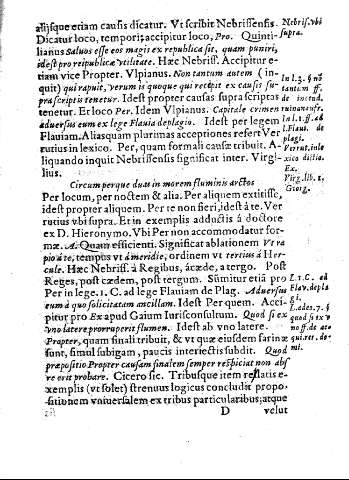 alijsque etiam causis dicatur. Vt scribit Nebrissensis.
Dicatur loco, tempori; accipitur loco, Pro. Quinti-
lianus Saluos esse eos magis ex republica sit, quam puniri,
id est pro reipublicæ vtilitate. Hæc Nebriss. Accipitur e-
tiam vice Propter. Vlpianus. Non tantum autem (in-
quit) qui rapuit, verum is quoque qui recepit ex causis su-
pra scriptis tenetur. Idest propter causas supra scriptas
tenetur. Et loco Per. Idem Vlpianus. Capitale crimen
aduersus eum ex lege Flauia de plagio. Idest per legem
Flauiam. Aliasquam plurimas acceptiones refert Ver
rutius in lexico. Per, quam formali causæ tribuit. A-
liquando inquit Nebrissensis significat inter. Virgi-
lius.
Circum perque duas in morem fluminis arctos
Per locum, per noctem & alia. Per aliquem extitisse,
idest propter aliquem. Per te non fieri, idest à te. Ver
rutius vbi supra. Et in exemplis adductis à doctore
ex D. Hieronymo. Vbi Per non accommodatur for-
mæ. A. Quam efficienti. Significat ablationem Vt ra
pio à te, tempus vt à meridie, ordinem vt tertius à Her-
cule. Hæc Nebriss. à Regibus, à cæde, a tergo. Post
Reges, post cædem, post tergum. Sumitur etiā pro
Per in lege. 1. C. ad lege Flauiam de Plag. Aduersus
eum à quo solicitatam ancillam. Idest Per quem. Acci-
pitur pro Ex apud Gaium Iurisconsultum. Quod si ex
vno latere prorruperit flumen. Idest ab vno latere.
Propter, quam finali tribuit, & vt quæ eiusdem farinæ
sunt, simul subigam, paucis interiectis subdit. Quod
præpositio Propter causam finalem semper respiciat non abs
re erit probare. Cicero sic. Tribusque item relatis e-
xemplis (vt solet) strenuus logicus concludit propo-
sitionem vniuersalem ex tribus particularibus; atque
D velut
Nebris. vbi
supra.
In l. 3. § nō
tantum ff.
de incend.
In l. 1. ff. ad
l. Flaui. de
plag.
Verrut. in le
xico dictio.
Ex.
Virg. lib. 1,
Georg.
L. 1. C. ad
Flau. de pla
gi.
L. ades. 7. §
quod si ex v
no ff. de at
qui. re. do-
mi.